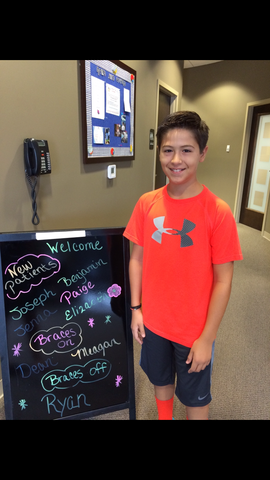 Welcome
New Patients
Joseph Benjamin
Jenna Paige
Eliza
Braces on
Dean Meagan
Braces off
Ryan